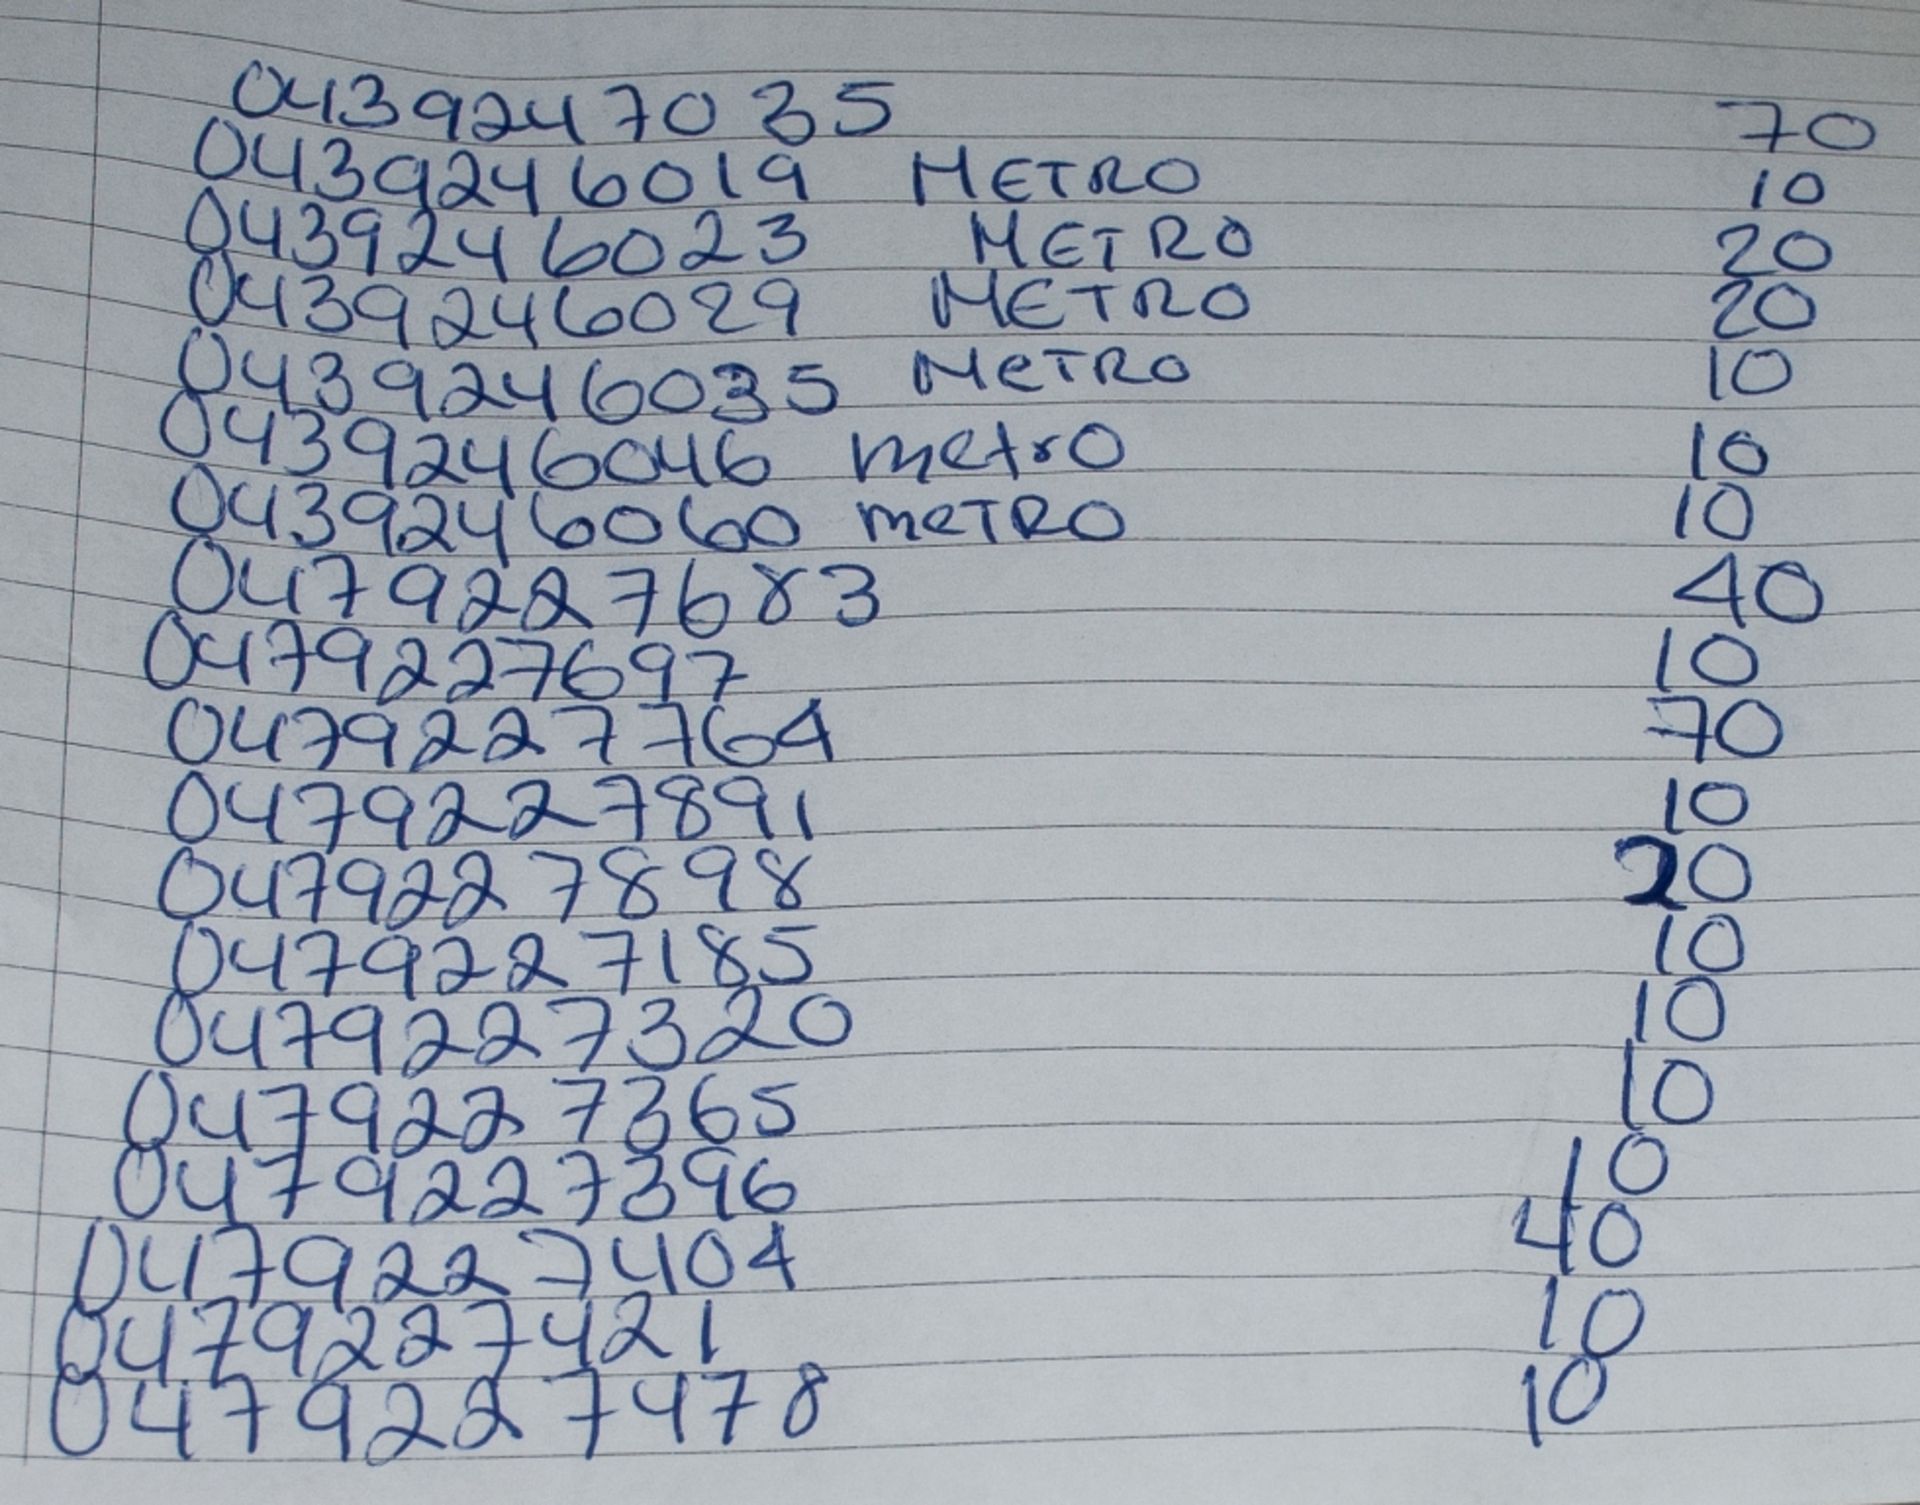 0439247035 70
0439246019 METRO 10
0439246023 METRO 20
0439246029 METRO 20
0439246035 MeTRO 10
0439246046 metro 10
0439246060 meTRO 10
0479227683 40
0479227697 10
0479227764 70
0479227891 10
0479227898 20
0479227185 10
0479227320 10
0479227365 10
0479227396 10
0479227404 40
0479227421 10
0479227478 10